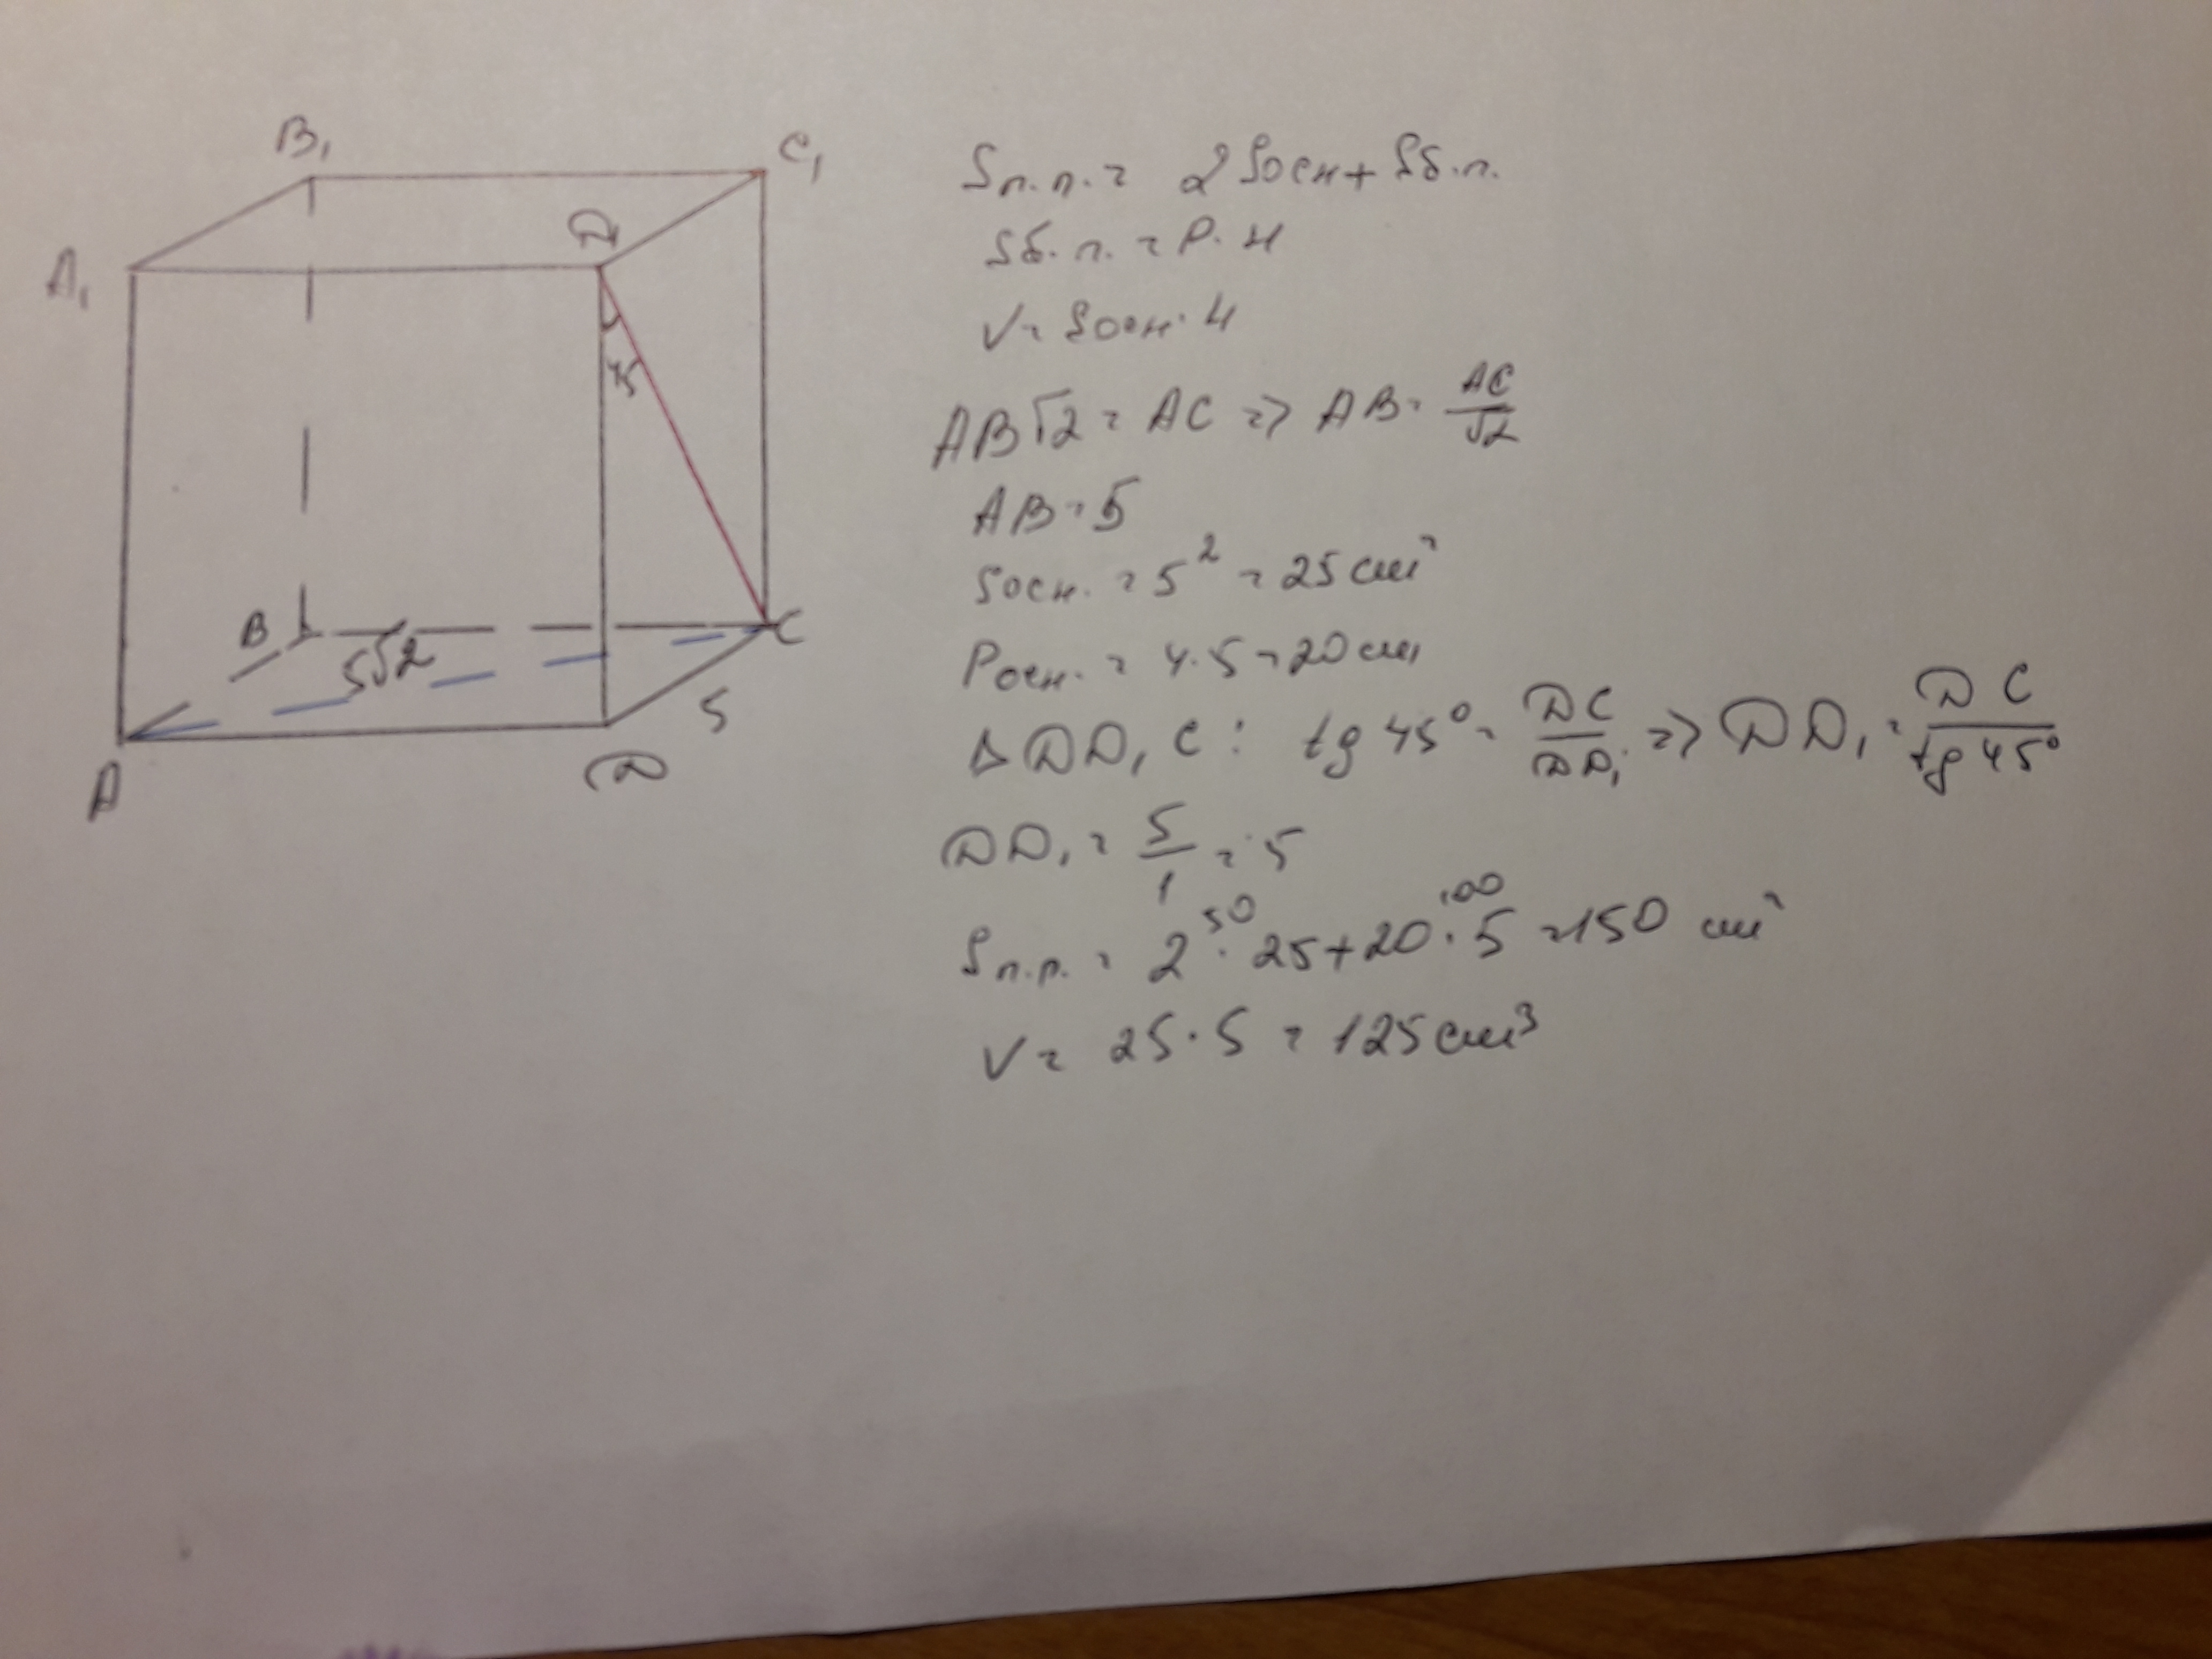 B₁
C₁
A₁
D₁
45
B
5√2
C
5
A
D
Sп.п. = 2Sосн + Sб.п.
Sб.п. = P·H
V = Sосн·H
AB√2 = AC => AB = AC/√2
AB = 5
Sосн. = 5² = 25 см²
Pосн. = 4·5 = 20 см
Δ DD₁C: tg 45° = DC/DD₁ => DD₁ = DC/tg 45°
DD₁ = 5/1 = 5
50 100
Sп.п. = 2·25+20·5 = 150 см²
V = 25·5 = 125 см³